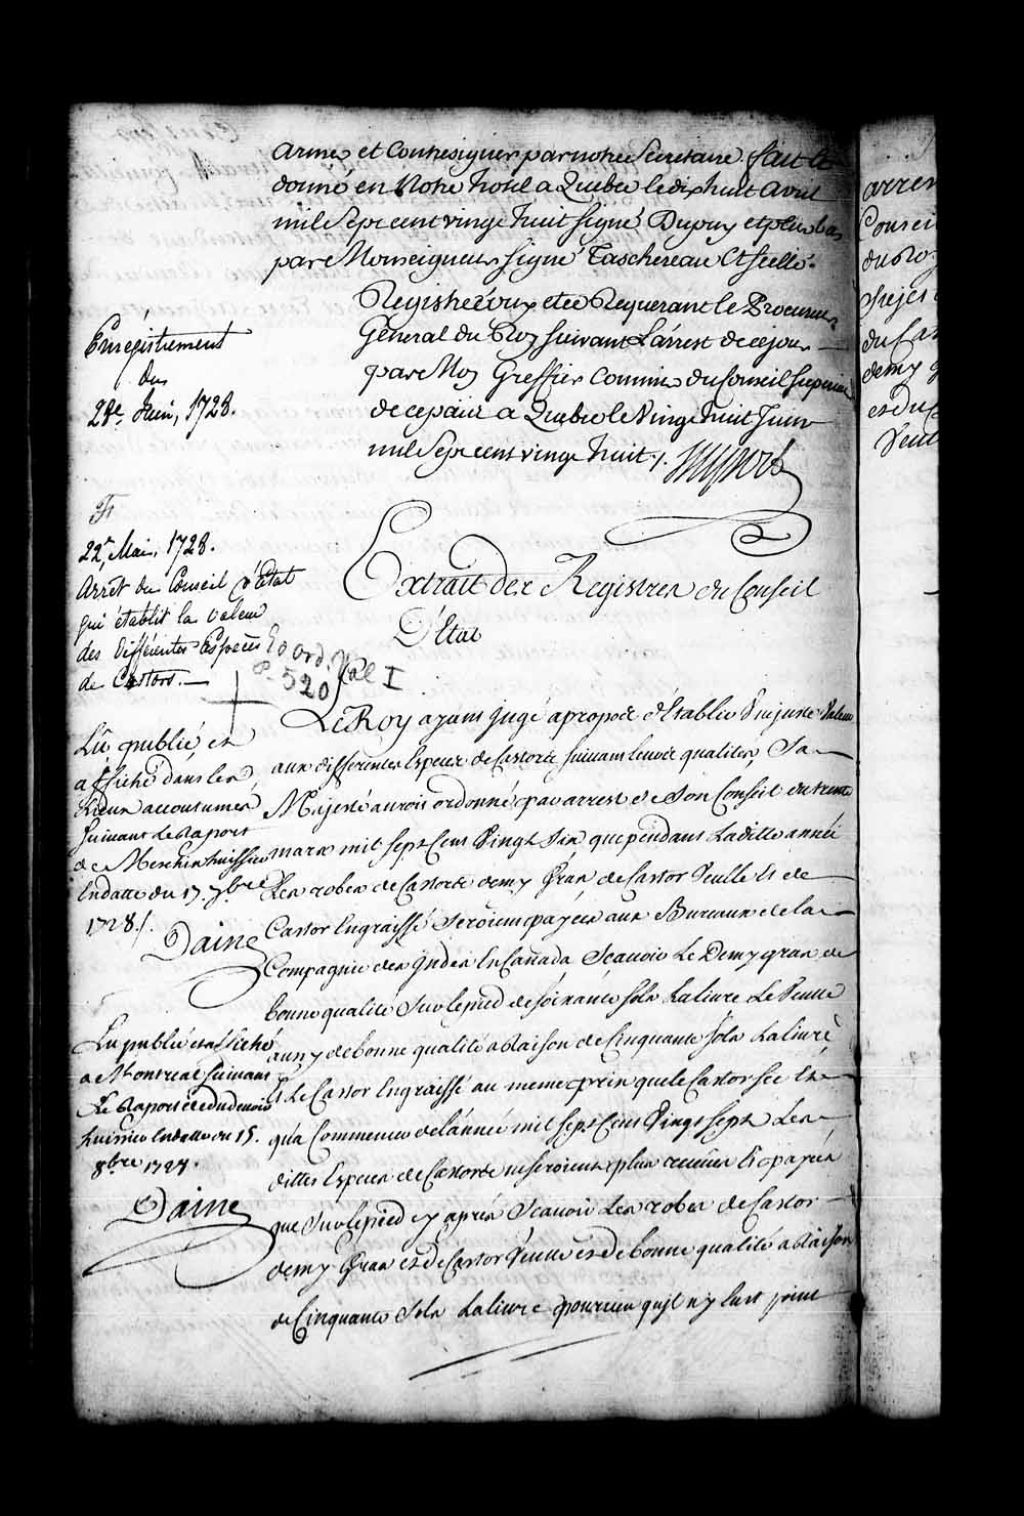 armes et Contresigner par notre Secretaire. fait et
donné en Notre hotel a Quebec le dix huit avril
mil Sept cent vingt huit signé Dupuy et plus bas
par Monseigneur signé Taschereau Et scellé.
Registré ouy et ce Requerant le Procureur
General du Roy suivant L'arrest de ce jour
par Moy Greffier Commis du Conseil superieur
de ce païs a Quebec le Vingt huit Juin
mil Sept cent vingt huit /.
Enrégistrement
du
28e Juin, 1728.
22e Mai, 1728.
Arrêt du Conseil d'État
qui établit la valeur
des différentes Espèces
de Castors.—
Ed Ord. Vol I
P. 520
Extrait des Registres du Conseil
D'Etat
Lû publié, et
affiché dans les
Lieux accoutumés
suivant le Raport
de Meschin huissier
En datte du 17. 7bre
1728 /.
Daine
Lu publié et affiché
a Montreal suivant
Le Raport dudit
huissier En datte du 15.
8bre 1728.
Daine
Le Roy ayant jugé apropos d'Etablir Une juste Valeur
aux differentes Especes de Castors suivant leurs qualités, Sa
Majesté auroit ordonné par arrest de Son Conseil du trente
mars mil sept Cens Vingt Six que pendant Laditte année
Les robes de Castors demy Gras de Castor Veulle Et de
Castor Engraissé Seroient payées aux Bureaux de la
Compagnie des Indes En Canada Scavoir Le Demy gras de
bonne qualité Sur le pied de soixante sols La livre Le Veulle
aussy de bonne qualité a Raison de Cinquante Sols La livre
Et Le Castor Engraissé au meme prix que le Castor sec Et
qu'a Commencer de l'année mil sept Cens Vingt sept Les
dittes Especes de Castors ne seroient plus receues Et payées
que Sur le pied cy après Scavoir Les robes de Castor
demy Gras et de Castor Veulle et de bonne qualité a Raison
de Cinquante Sols La livre pourveu qu'il n'y Eust point
arrest
Conseil
du Roy
Sujet
du Cas
demy g
et du C
Veul